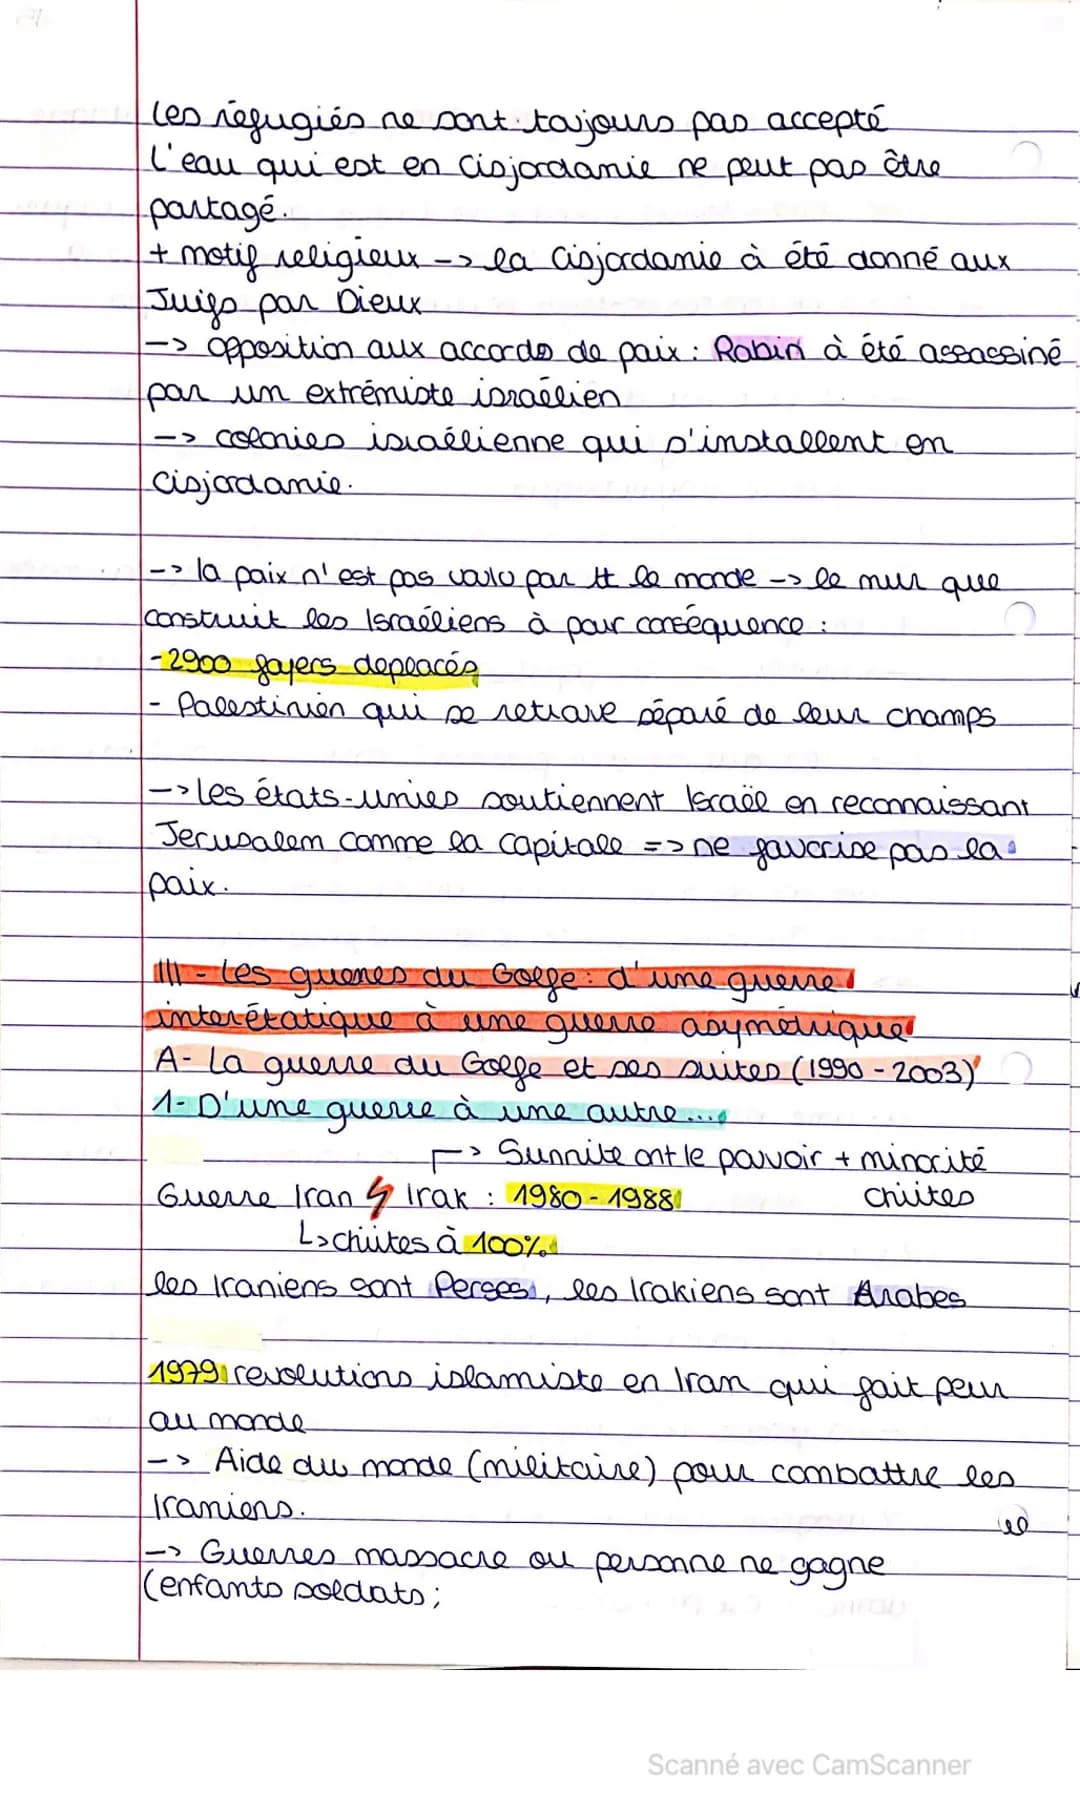 Les réfugiés ne sont toujours pas accepté
L'eau qui est en Cisjordanie ne peut pas être
partagé.
+ motif religieux -> la Cisjordanie à été donné aux
Juifs par Dieux
-> opposition aux accords de paix : Rabin à été assassiné
par un extrémiste israélien
-> colonies israélienne qui s'installent en
cisjordanie.
-> la paix n'est pas voulu par tt le monde -> le mur que
construit les Israéliens à pour conséquence :
- 2900 foyers deplacés
- Palestinien qui se retrouve séparé de leur champs
-> les états-unies soutiennent Israël en reconnaissant
Jerusalem comme la capitale => ne favorise pas la
paix.
III - Les guerres du Golfe : d'une guerre
interétatique à une guerre asymétrique
A- La guerre du Golfe et ses suites (1990 - 2003)
1- D'une guerre à une autre...
-> Sunnite ont le pouvoir + minorité
Guerre Iran Irak : 1980 - 1988 chiites
L> chiites à 100%
les Iraniens sont Perses, les Irakiens sont Arabes
1979 revolutions islamiste en Iran qui fait peur
au monde
-> Aide du monde (militaire) pour combattre les
Iraniens.
-> Guerres massacre ou personne ne gagne
(enfants soldats ;
Scanné avec CamScanner